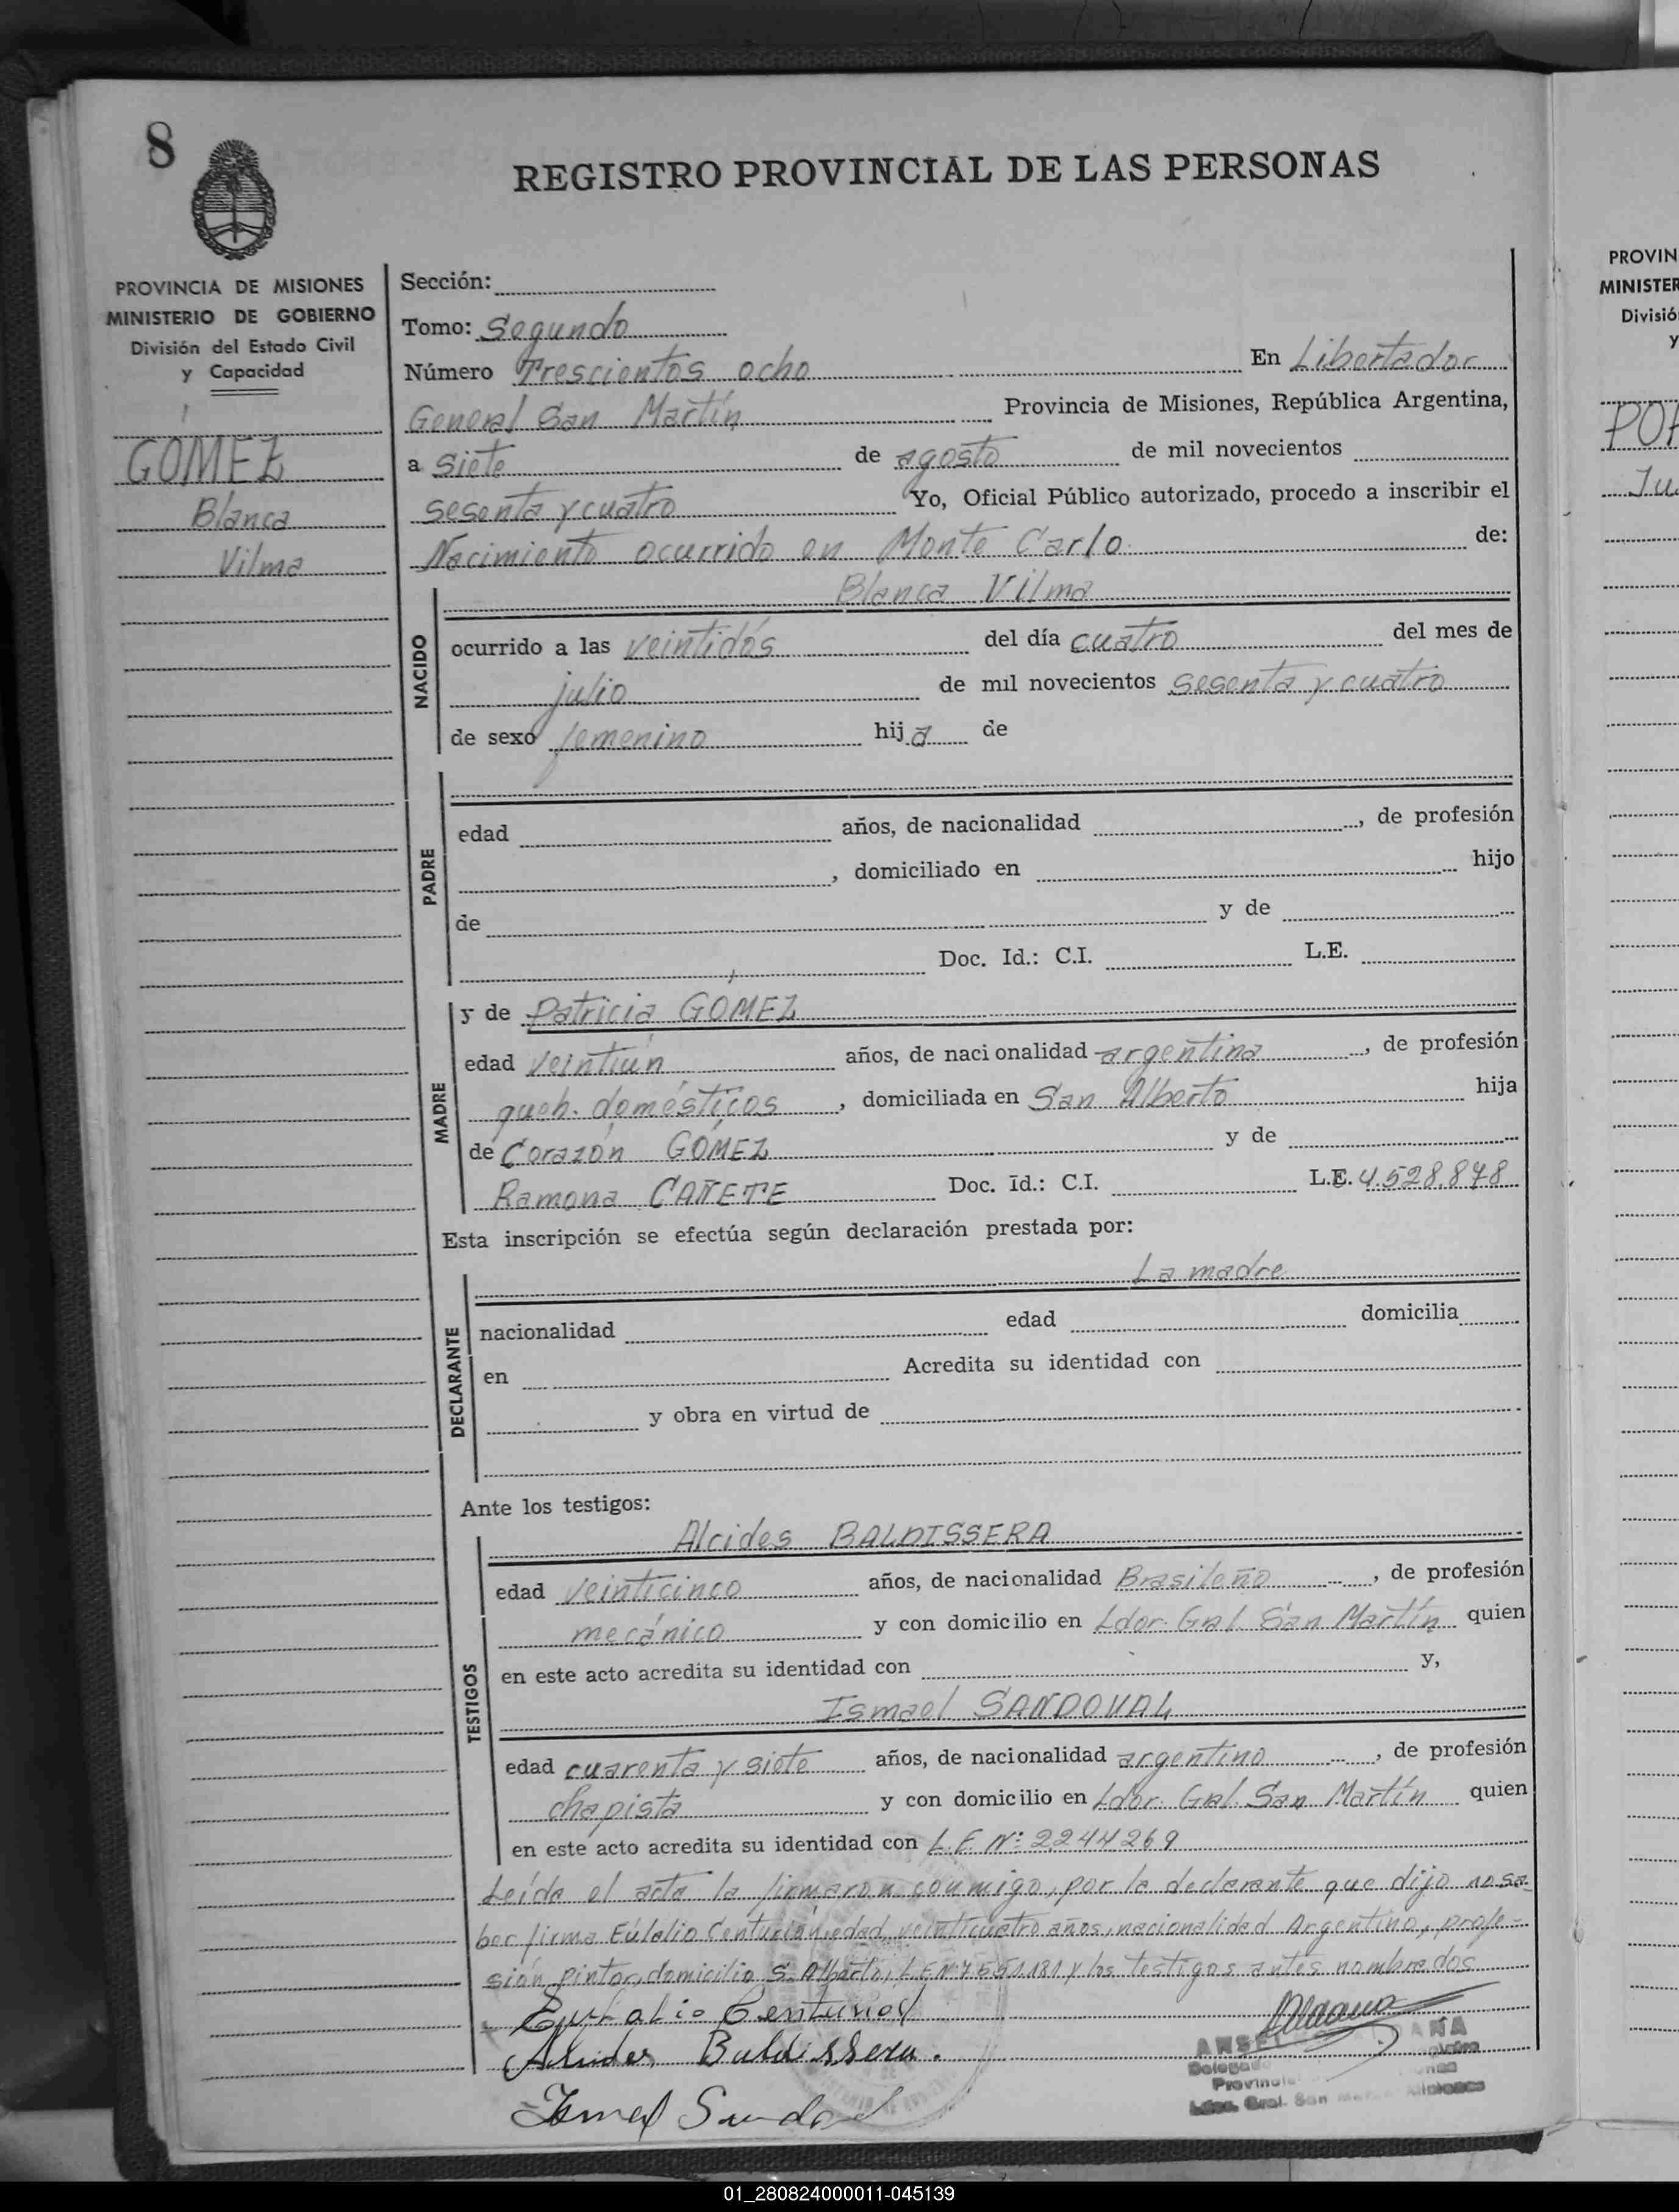 8
REGISTRO PROVINCIAL DE LAS PERSONAS
PROVINCIA DE MISIONES
MINISTERIO DE GOBIERNO
División del Estado Civil
y Capacidad
GÓMEZ
Blanca
Vilma
Sección:
Tomo: Segundo
Número Trescientos ocho En Libertador
General San Martín Provincia de Misiones, República Argentina,
a siete de agosto de mil novecientos
sesenta y cuatro Yo, Oficial Público autorizado, procedo a inscribir el
Nacimiento ocurrido en Monte Carlo de:
Blanca Vilma
NACIDO
ocurrido a las veintidós del día cuatro del mes de
julio de mil novecientos sesenta y cuatro
de sexo femenino hija de
PADRE
edad años, de nacionalidad , de profesión
, domiciliado en hijo
de y de
Doc. Id.: C.I. L.E.
MADRE
y de Patricia GÓMEZ
edad veintiún años, de nacionalidad argentina , de profesión
queh. domésticos , domiciliada en San Alberto hija
de Corazón GÓMEZ y de
Ramona CAÑETE Doc. Id.: C.I. L.E. 4.528.878
Esta inscripción se efectúa según declaración prestada por:
La madre
DECLARANTE
nacionalidad edad domicilia
en Acredita su identidad con
y obra en virtud de
Ante los testigos:
TESTIGOS
Alcides BALDISSERA
edad veinticinco años, de nacionalidad Brasileño , de profesión
mecánico y con domicilio en Ldor. Gral. San Martín quien
en este acto acredita su identidad con y,
Ismael SANDOVAL
edad cuarenta y siete años, de nacionalidad argentino , de profesión
chapista y con domicilio en Ldor. Gral. San Martín quien
en este acto acredita su identidad con L.E. Nº: 2244269
Leída el acta la firmaron conmigo, por la declarante que dijo no sa-
ber firma Eulalio Centurión, edad veinticuatro años, nacionalidad Argentino, profe-
sión pintor, domicilio S. Alberto, L.E.Nº 7551181 y los testigos antes nombrados
Eulalio Centurion
Alcides Baldissera.
Ismael Sandoval
Provincial
Ldor. Gral. San Misiones
PROVIN
MINISTER
Divisió
y
Ju
01_280824000011-045139